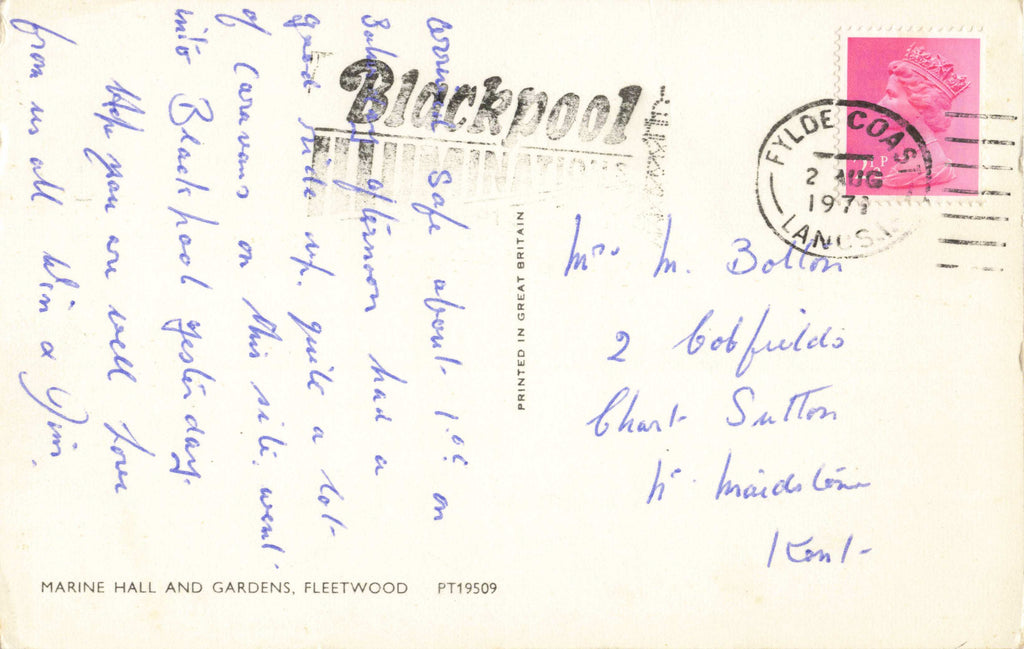 Arrived Safe about 1.0c on
Saturday afternoon had a
good ride up. quite a lot
of Caravans on this site. went
into Blackpool yesterday.
Hope you are well Love
from us all Win & Jim.
Blackpool
ILLUMINATIONS
FYLDE COAST
2 AUG
197
LANCS.
P
PRINTED IN GREAT BRITAIN
Mrs M. Bolton
2 Cobfields
Chart Sutton
Nr Maidstone
Kent
MARINE HALL AND GARDENS, FLEETWOOD PT19509